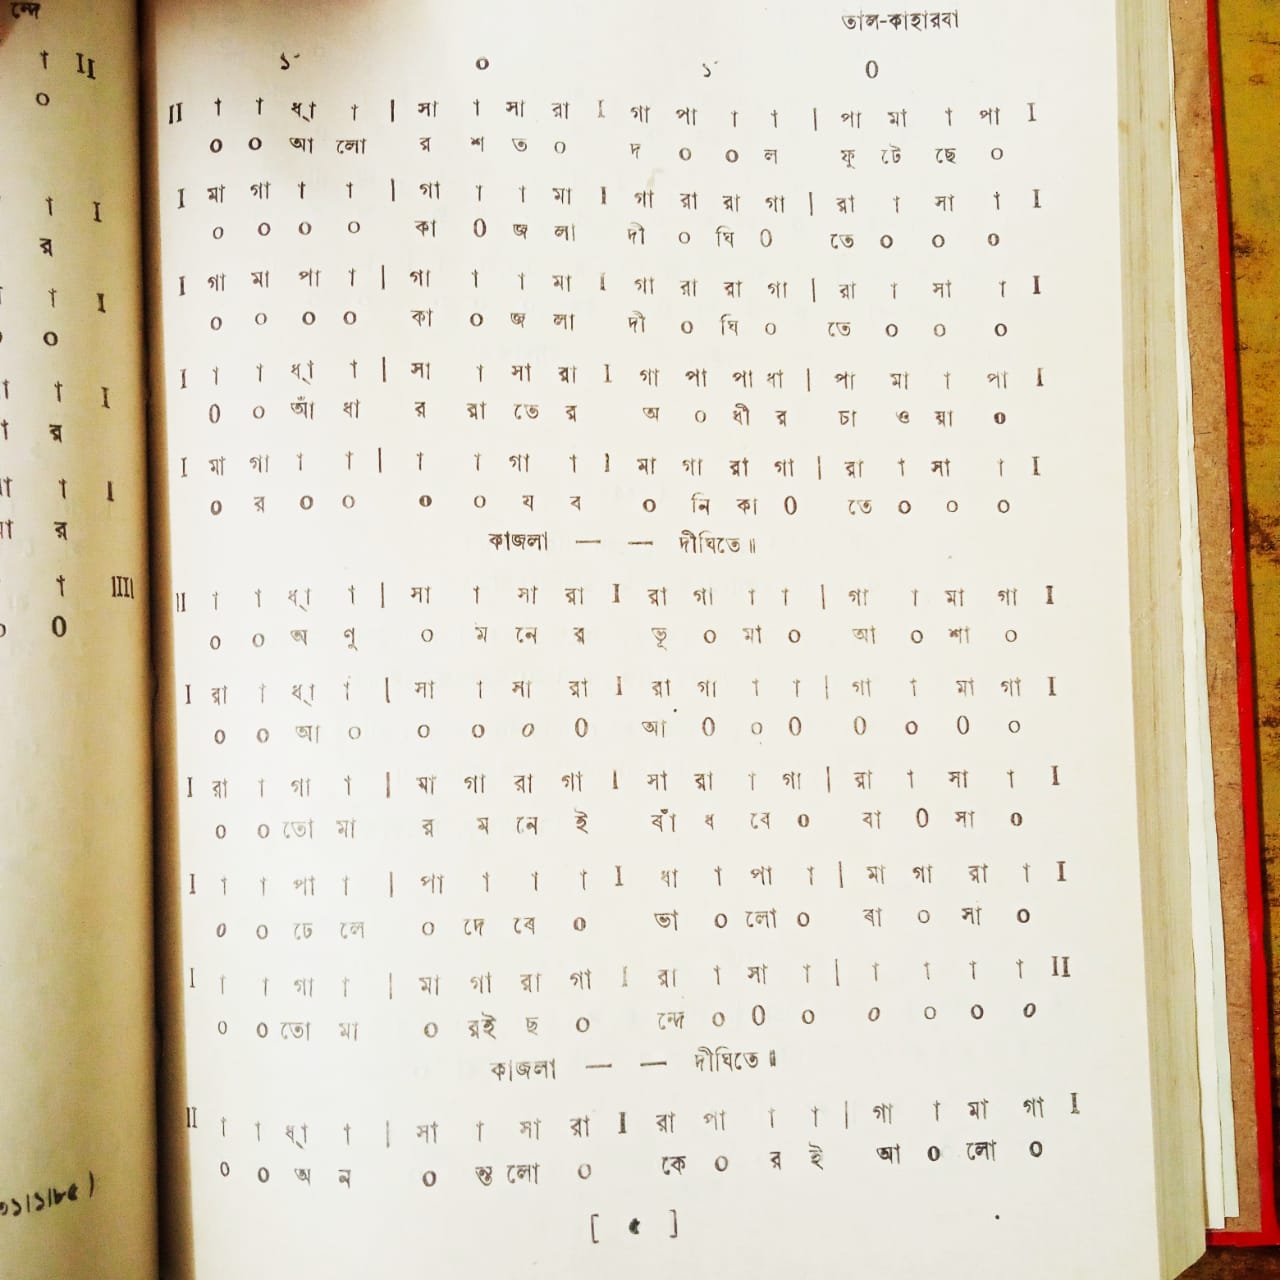 তাল-কাহারবা
১´ ০ ১´ ০
II া া ধ্া া | সা া সা রা I গা পা া া | পা মা া পা I
০ ০ আ লো র শ ত ০ দ ০ ০ ল ফু টে ছে ০
I মা গা া া | গা া া মা I গা রা রা গা | রা া সা া I
০ ০ ০ ০ কা ০ জ লা দী ০ ঘি ০ তে ০ ০ ০
I গা মা পা া | গা া া মা I গা রা রা গা | রা া সা া I
০ ০ ০ ০ কা ০ জ লা দী ০ ঘি ০ তে ০ ০ ০
I া া ধ্া া | সা া সা রা I গা পা পা ধা | পা মা া পা I
০ ০ আঁ ধা র রা তে র অ ০ ধী র চা ও য়া ০
I মা গা া া | া া গা া I মা গা রা গা | রা া সা া I
০ র ০ ০ ০ ০ য ব ০ নি কা ০ তে ০ ০ ০
কাজলা — — দীঘিতে॥
II া া ধ্া া | সা া সা রা I রা গা া া | গা া মা গা I
০ ০ অ ণু ০ ম নে র ভূ ০ মা ০ আ ০ শা ০
I রা া ধ্া া | সা া সা রা I রা গা া া | গা া মা গা I
০ ০ আ ০ ০ ০ ০ ০ আ ০ ০ ০ ০ ০ ০ ০
I রা া গা া | মা গা রা গা I সা রা া গা | রা া সা া I
০ ০ তো মা র ম নে ই বাঁ ধ বে ০ বা ০ সা ০
I া া পা া | পা া া া I ধা া পা া | মা গা রা া I
০ ০ ঢে লে ০ দে বে ০ ভা ০ লো ০ বা ০ সা ০
I া া গা া | মা গা রা গা I রা া সা া | া া া া II
০ ০ তো মা ০ রই ছ ০ ন্দে ০ ০ ০ ০ ০ ০ ০
কাজলা — — দীঘিতে॥
II া া ধ্া া | সা া সা রা I রা পা া া | গা া মা গা I
০ ০ অ ন ০ ন্ত লো ০ কে ০ র ই আ ০ লো ০
[ ৫ ]